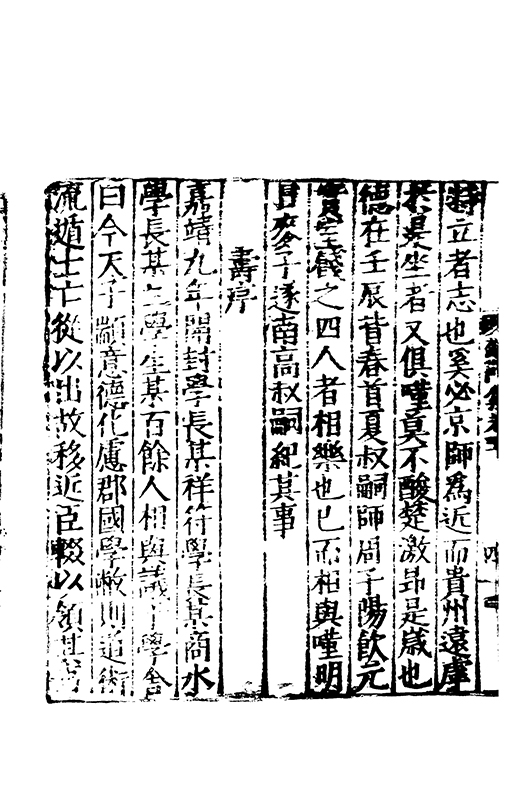 特立者志也奚必京師為近而貴州遠虖
於是坐者又俱嘆莫不酸楚激昂是歲也
德在壬辰昔春首夏叔嗣師周子陽飲元
實室餞之四人者相樂也已而相與嘆明
日麥子遂南高叔嗣紀其事
壽序
嘉靖九年開封學長某祥符學長某商水
學長某上學生某百餘人相與議于學舍
曰今天子顓意德化慮郡國學敝則道術
流遁士亡從以出故移近臣輟以領其